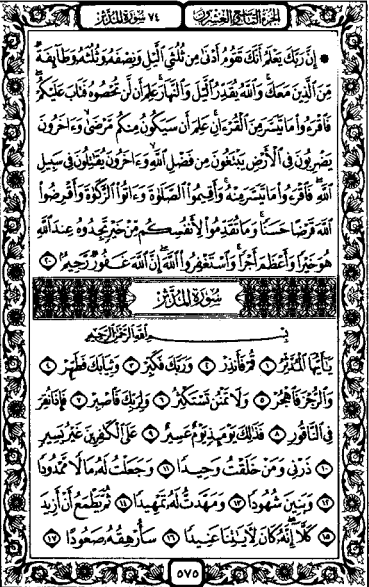 ٧٤ سورة المدثر الجزء التاسع والعشرون
۞ إن ربك يعلم أنك تقوم أدنى من ثلثي اليل ونصفه وثلثه وطائفة
من الذين معك والله يقدر اليل والنهار علم أن لن تحصوه فتاب عليكم
فاقرءوا ما تيسر من القرءان علم أن سيكون منكم مرضى وءاخرون
يضربون في الأرض يبتغون من فضل الله وءاخرون يقتلون في سبيل
الله فاقرءوا ما تيسر منه وأقيموا الصلوة وءاتوا الزكوة وأقرضوا
الله قرضا حسنا وما تقدموا لأنفسكم من خير تجدوه عند الله
هو خيرا وأعظم أجرا واستغفروا الله إن الله غفور رحيم ٢٠
سورة المدثر
بسم الله الرحمن الرحيم
يأيها المدثر ١ قم فأنذر ٢ وربك فكبر ٣ وثيابك فطهر ٤
والرجز فاهجر ٥ ولا تمنن تستكثر ٦ ولربك فاصبر ٧ فإذا نقر
في الناقور ٨ فذلك يومئذ يوم عسير ٩ على الكفرين غير يسير
١٠ ذرني ومن خلقت وحيدا ١١ وجعلت له مالا ممدودا
١٢ وبنين شهودا ١٣ ومهدت له تمهيدا ١٤ ثم يطمع أن أزيد
١٥ كلا إنه كان لأيتنا عنيدا ١٦ سأرهقه صعودا ١٧
٥٧٥